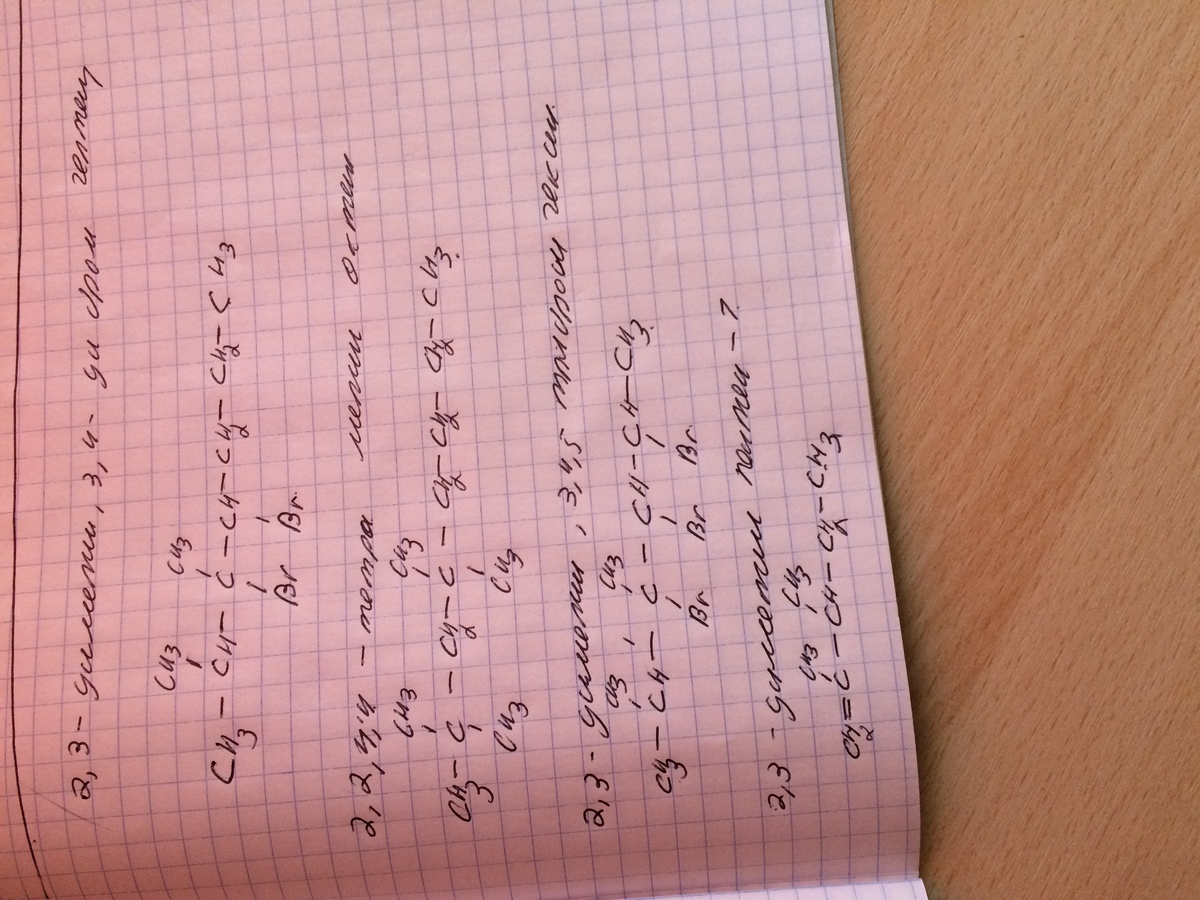 2,3 - диметил, 3,4 - ди бром гептан
CH3 CH3
CH3 – CH – C – CH – CH2 – CH2 – CH3
Br Br
2,2,4,4 – тетра метил октан
CH3 CH3
CH3 – C – CH2 – C – CH2 – CH2 – CH2 – CH3.
CH3 CH3
2,3 - диметил, 3,4,5 трибром гексан.
CH3 CH3
CH3 – CH – C – CH – CH – CH3.
Br Br Br
2,3 - диметил пентен – 1.
CH3 CH3
CH2 = C – CH – CH2 – CH3